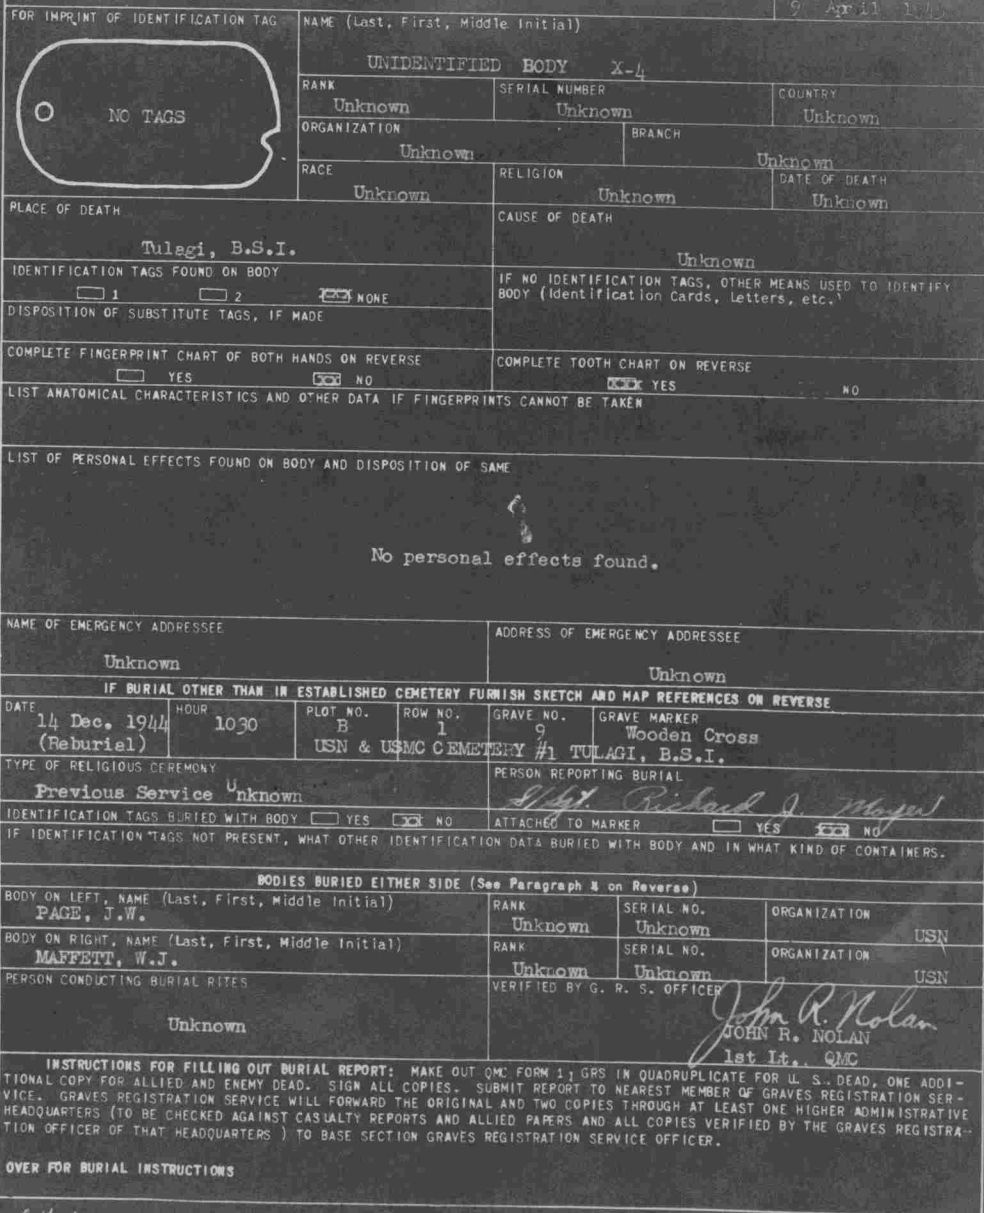 9 April
FOR IMPRINT OF IDENTIFICATION TAG
NO TAGS
NAME (Last, First, Middle Initial)
UNIDENTIFIED BODY X-4
RANK
Unknown
SERIAL NUMBER
Unknown
COUNTRY
Unknown
ORGANIZATION
Unknown
BRANCH
Unknown
RACE
Unknown
RELIGION
Unknown
DATE OF DEATH
Unknown
PLACE OF DEATH
Tulagi, B.S.I.
CAUSE OF DEATH
Unknown
IDENTIFICATION TAGS FOUND ON BODY
1 2 XXX NONE
IF NO IDENTIFICATION TAGS, OTHER MEANS USED TO IDENTIFY
BODY (Identification Cards, Letters, etc.)
DISPOSITION OF SUBSTITUTE TAGS, IF MADE
COMPLETE FINGERPRINT CHART OF BOTH HANDS ON REVERSE
YES XXX NO
COMPLETE TOOTH CHART ON REVERSE
XXXX YES NO
LIST ANATOMICAL CHARACTERISTICS AND OTHER DATA IF FINGERPRINTS CANNOT BE TAKEN
LIST OF PERSONAL EFFECTS FOUND ON BODY AND DISPOSITION OF SAME
No personal effects found.
NAME OF EMERGENCY ADDRESSEE
Unknown
ADDRESS OF EMERGENCY ADDRESSEE
Unknown
IF BURIAL OTHER THAN IN ESTABLISHED CEMETERY FURNISH SKETCH AND MAP REFERENCES ON REVERSE
DATE
14 Dec. 1944
(Reburial)
HOUR
1030
PLOT NO.
B
ROW NO.
1
GRAVE NO.
9
GRAVE MARKER
Wooden Cross
USN & USMC CEMETERY #1 TULAGI, B.S.I.
TYPE OF RELIGIOUS CEREMONY
Previous Service Unknown
PERSON REPORTING BURIAL
S/Sgt. Richard J. Moyer
IDENTIFICATION TAGS BURIED WITH BODY YES XX NO
ATTACHED TO MARKER YES XXX NO
IF IDENTIFICATION TAGS NOT PRESENT, WHAT OTHER IDENTIFICATION DATA BURIED WITH BODY AND IN WHAT KIND OF CONTAINERS.
BODIES BURIED EITHER SIDE (See Paragraph 4 on Reverse)
BODY ON LEFT, NAME (Last, First, Middle Initial)
PAGE, J.W.
RANK
Unknown
SERIAL NO.
Unknown
ORGANIZATION
USN
BODY ON RIGHT, NAME (Last, First, Middle Initial)
MAFFETT, W.J.
RANK
Unknown
SERIAL NO.
Unknown
ORGANIZATION
USN
PERSON CONDUCTING BURIAL RITES
Unknown
VERIFIED BY G. R. S. OFFICER
John R. Nolan
JOHN R. NOLAN
1st Lt., QMC
INSTRUCTIONS FOR FILLING OUT BURIAL REPORT: MAKE OUT QMC FORM 1, GRS IN QUADRUPLICATE FOR U. S. DEAD, ONE ADDI-
TIONAL COPY FOR ALLIED AND ENEMY DEAD. SIGN ALL COPIES. SUBMIT REPORT TO NEAREST MEMBER OF GRAVES REGISTRATION SER-
VICE. GRAVES REGISTRATION SERVICE WILL FORWARD THE ORIGINAL AND TWO COPIES THROUGH AT LEAST ONE HIGHER ADMINISTRATIVE
HEADQUARTERS (TO BE CHECKED AGAINST CASUALTY REPORTS AND ALLIED PAPERS AND ALL COPIES VERIFIED BY THE GRAVES REGISTRA-
TION OFFICER OF THAT HEADQUARTERS ) TO BASE SECTION GRAVES REGISTRATION SERVICE OFFICER.
OVER FOR BURIAL INSTRUCTIONS